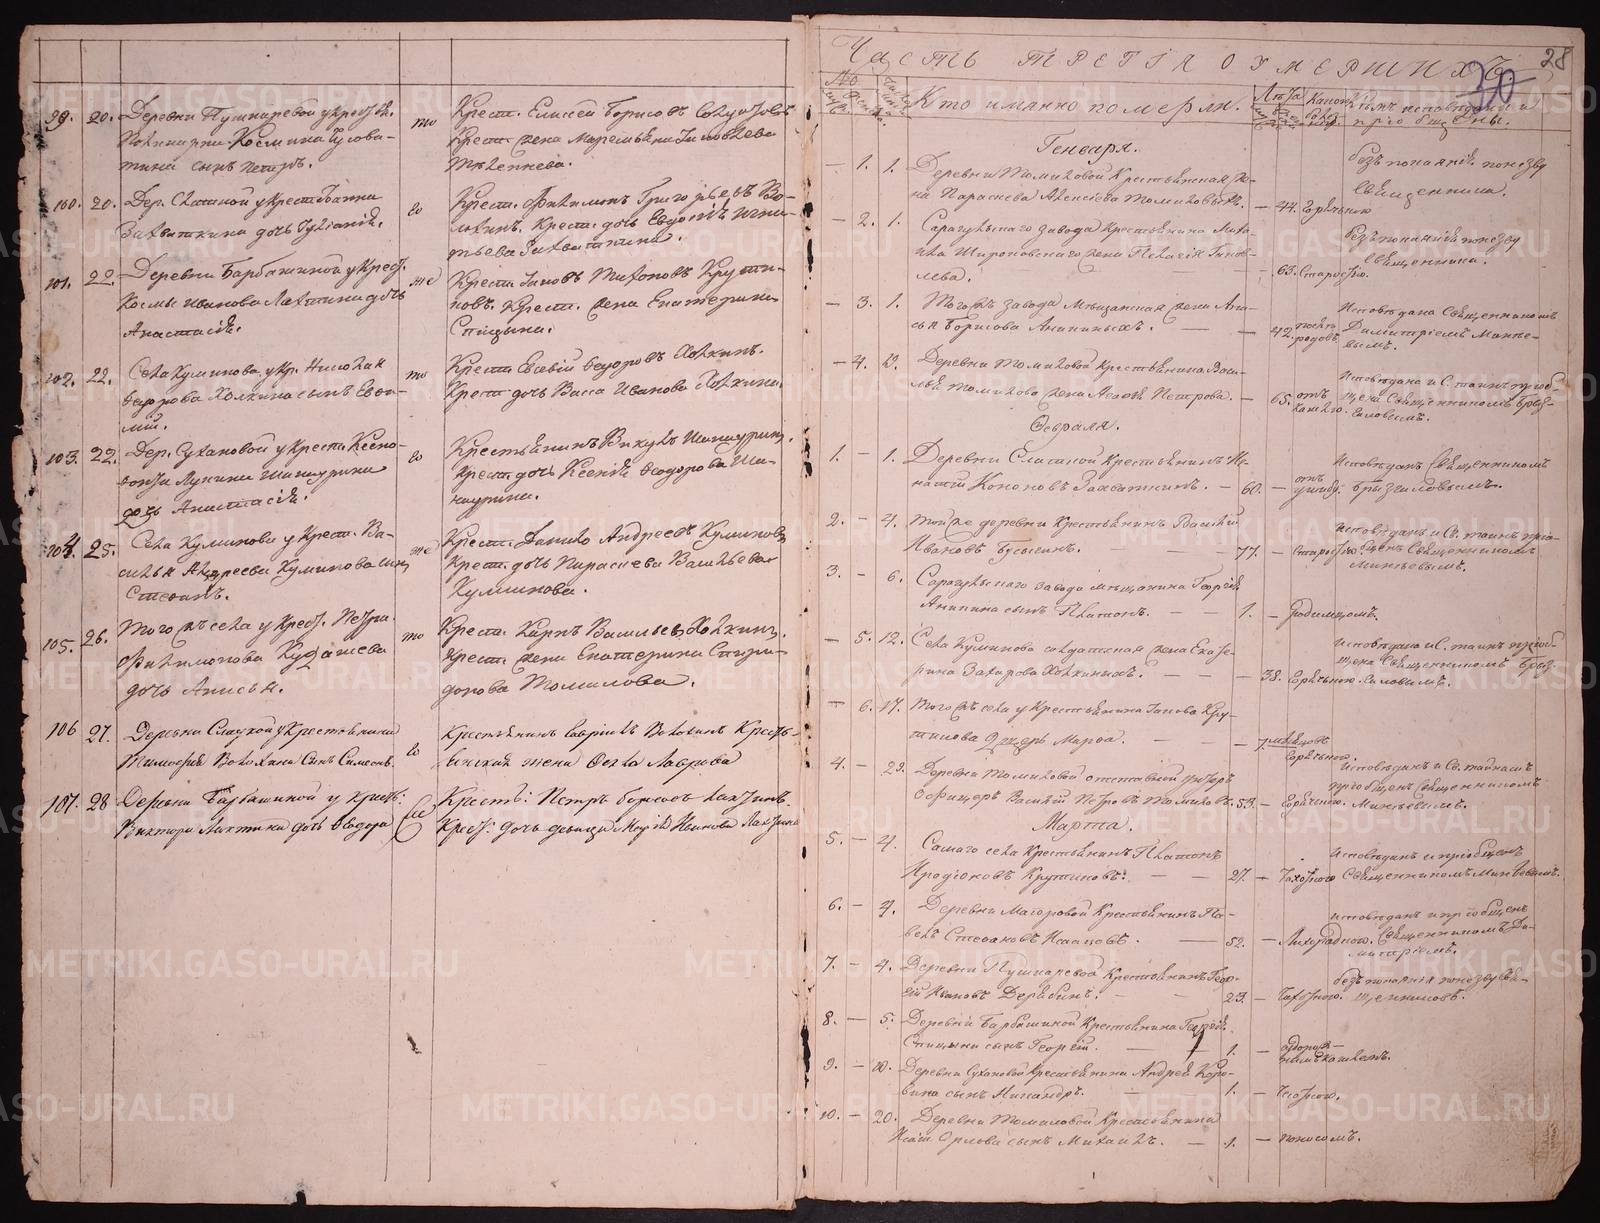 99. 20. Деревни Пушкаревой у крестьян.
Космина
тина сынъ Петръ.
то
Крест. Елисей Борисовъ
Крест. жена
100. 20. Дер. Слатной у крестьянина
Захваткина дочь Гуліанія.
то
Крест. Филимонъ Григорьевъ Во-
лохинъ. Крест. дочь Евдокія Игна-
тьева Захваткина.
101. 22. Деревни Барбашиной у Крест.
Космы Иванова Лахтина дочь
Анастасія.
тѣ
Крест. Іаковъ Тихоновъ Крути-
ковъ. Крест. жена Екатерина
Спицына.
102. 22. Села Куликова у кр. Николая
Федорова Холкина сынъ Евѳи-
мій.
то
Крест. Евсевій Федоровъ Холкинъ.
Крест. дочь Васса Иванова Холкина.
103. 22. Дер. Сухановой у Крест. Ксено-
фонта Лукина Шишурина
дочь Анастасія.
то
Крестьянинъ Викулъ Шишуринъ.
Крест. дочь Ксенія Федорова Ши-
шурина.
104. 25. Села Куликова у Крест. Ва-
силья Андреева Куликова сынъ
Стефанъ.
тѣ
Крест. Данило Андреевъ Куликовъ
Крест. дочь Параскева Васильева
Куликова.
105. 26. Того жъ села у Крест. Петра
Филимонова Кудашева
дочь Анисья.
то
Крест. Карпъ Васильевъ Холкинъ.
Крест. жена Екатерина Спири-
донова Томилова.
106 27. Деревни Слатной у Крестьянина
Тимофея Волохина сынъ Симеонъ.
то
Крестьянинъ Гавріилъ Волохинъ Кресть-
янская жена Фекла Лаврова
107. 28 Деревни Барбашиной у крест:
Виктора Лахтина дочь Феодора
Крест: Петръ Борисовъ Лахтинъ.
Крест: дочь девица Марія Иванова Лахтина
28
30
Часть третія о умершихъ.
Кто имянно померли.
Лѣта
Кѣмъ исповѣданы и
пріобщены.
Генваря.
— 1. 1. Деревни Томиловой Крестьянская же-
на Параскева Алексіева Томиловыхъ. — 44. Горячкою
безъ покаянія по незву
священника.
— 2. 1. Сарагульскаго завода Крестьянина Миха-
ила Широковскаго жена Пелагія Іаков-
лева. — 63. Старостію.
безъ покаянія по незву
священника.
— 3. 1. Того жъ завода Мѣщанская жена Ани-
сья Борисова Ананиныхъ. — 42. родовъ.
Исповѣдана Священникомъ
Димитріемъ Минѣе-
вымъ.
— 4. Деревни Томиловой Крестьянина Васи-
лья Томилова жена Агафія Петрова. — 65. отъ кашлю.
Исповѣдана и С. таинъ пріоб-
щена Священникомъ Брыз-
гловымъ.
Февраля.
1. — 1. Деревни Слатной Крестьянинъ Иг-
натій Кононовъ Захваткинъ. — 60. — отъ ушибу.
Исповѣданъ Священникомъ
Брызгаловымъ.
2. — 4. Той же деревни Крестьянинъ Василій
Ивановъ Бусыгинъ. — 77. — Старостію
исповѣданъ и Св. таинъ прі-
общенъ Священникомъ
Минѣевымъ.
3. — 6. Сарагульскаго завода мѣщанина Георгія
Ананина сынъ Платонъ. — 1. — родимцомъ.
— 5. 12. Села Куликова солдатская жена Екате-
рина Захарова Холкиныхъ. — 38. Горячкою.
Исповѣдана и С. таинъ пріоб-
щена Священникомъ Брыз-
галовымъ.
— 6. 17. Того жъ села у Крестьянина Іакова Кру-
тикова дщерь Марѳа. — 7. мѣсяцовъ
Горячкою.
4. — 22. Деревни Томиловой отставной унтеръ
офицеръ Василій Петровъ Томиловъ. 53. — Горячкою.
Исповѣданъ и Св. тайнамъ
пріобщенъ Священникомъ
Минѣевымъ.
Марта.
5. — 4. Самаго села Крестьянинъ Платонъ
Иродіоновъ Крутиковъ. — 27. — Чахоткою
Исповѣданъ и пріобщенъ
Священникомъ Минѣевымъ.
6. — 4. Деревни Макаровой Крестьянинъ Па-
велъ Стефановъ Исаковъ. — 52. — Лихорадкою.
исповѣданъ и пріобщенъ
Священникомъ Ди-
митріемъ.
7. — 4. Деревни Пушкаревой Крестьянинъ Геор-
гій Ивановъ Дерябинъ. — 23. — Чахоткою.
безъ покаянія по незву свя-
щенниковъ.
8. — 5. Деревни Барбашиной Крестьянина Георгія
Спицына сынъ Георгій. — 1. — кашлемъ.
9. — 10. Деревни Сухановой Крестьянина Андрея Коро-
вина сынъ Никандръ. — 1. —
10. — 20. Деревни Томиловой Крестьянина
Исаіи Орлова сынъ Михаилъ. — 1. — поносомъ.
METRIKI.GASO-URAL.RU